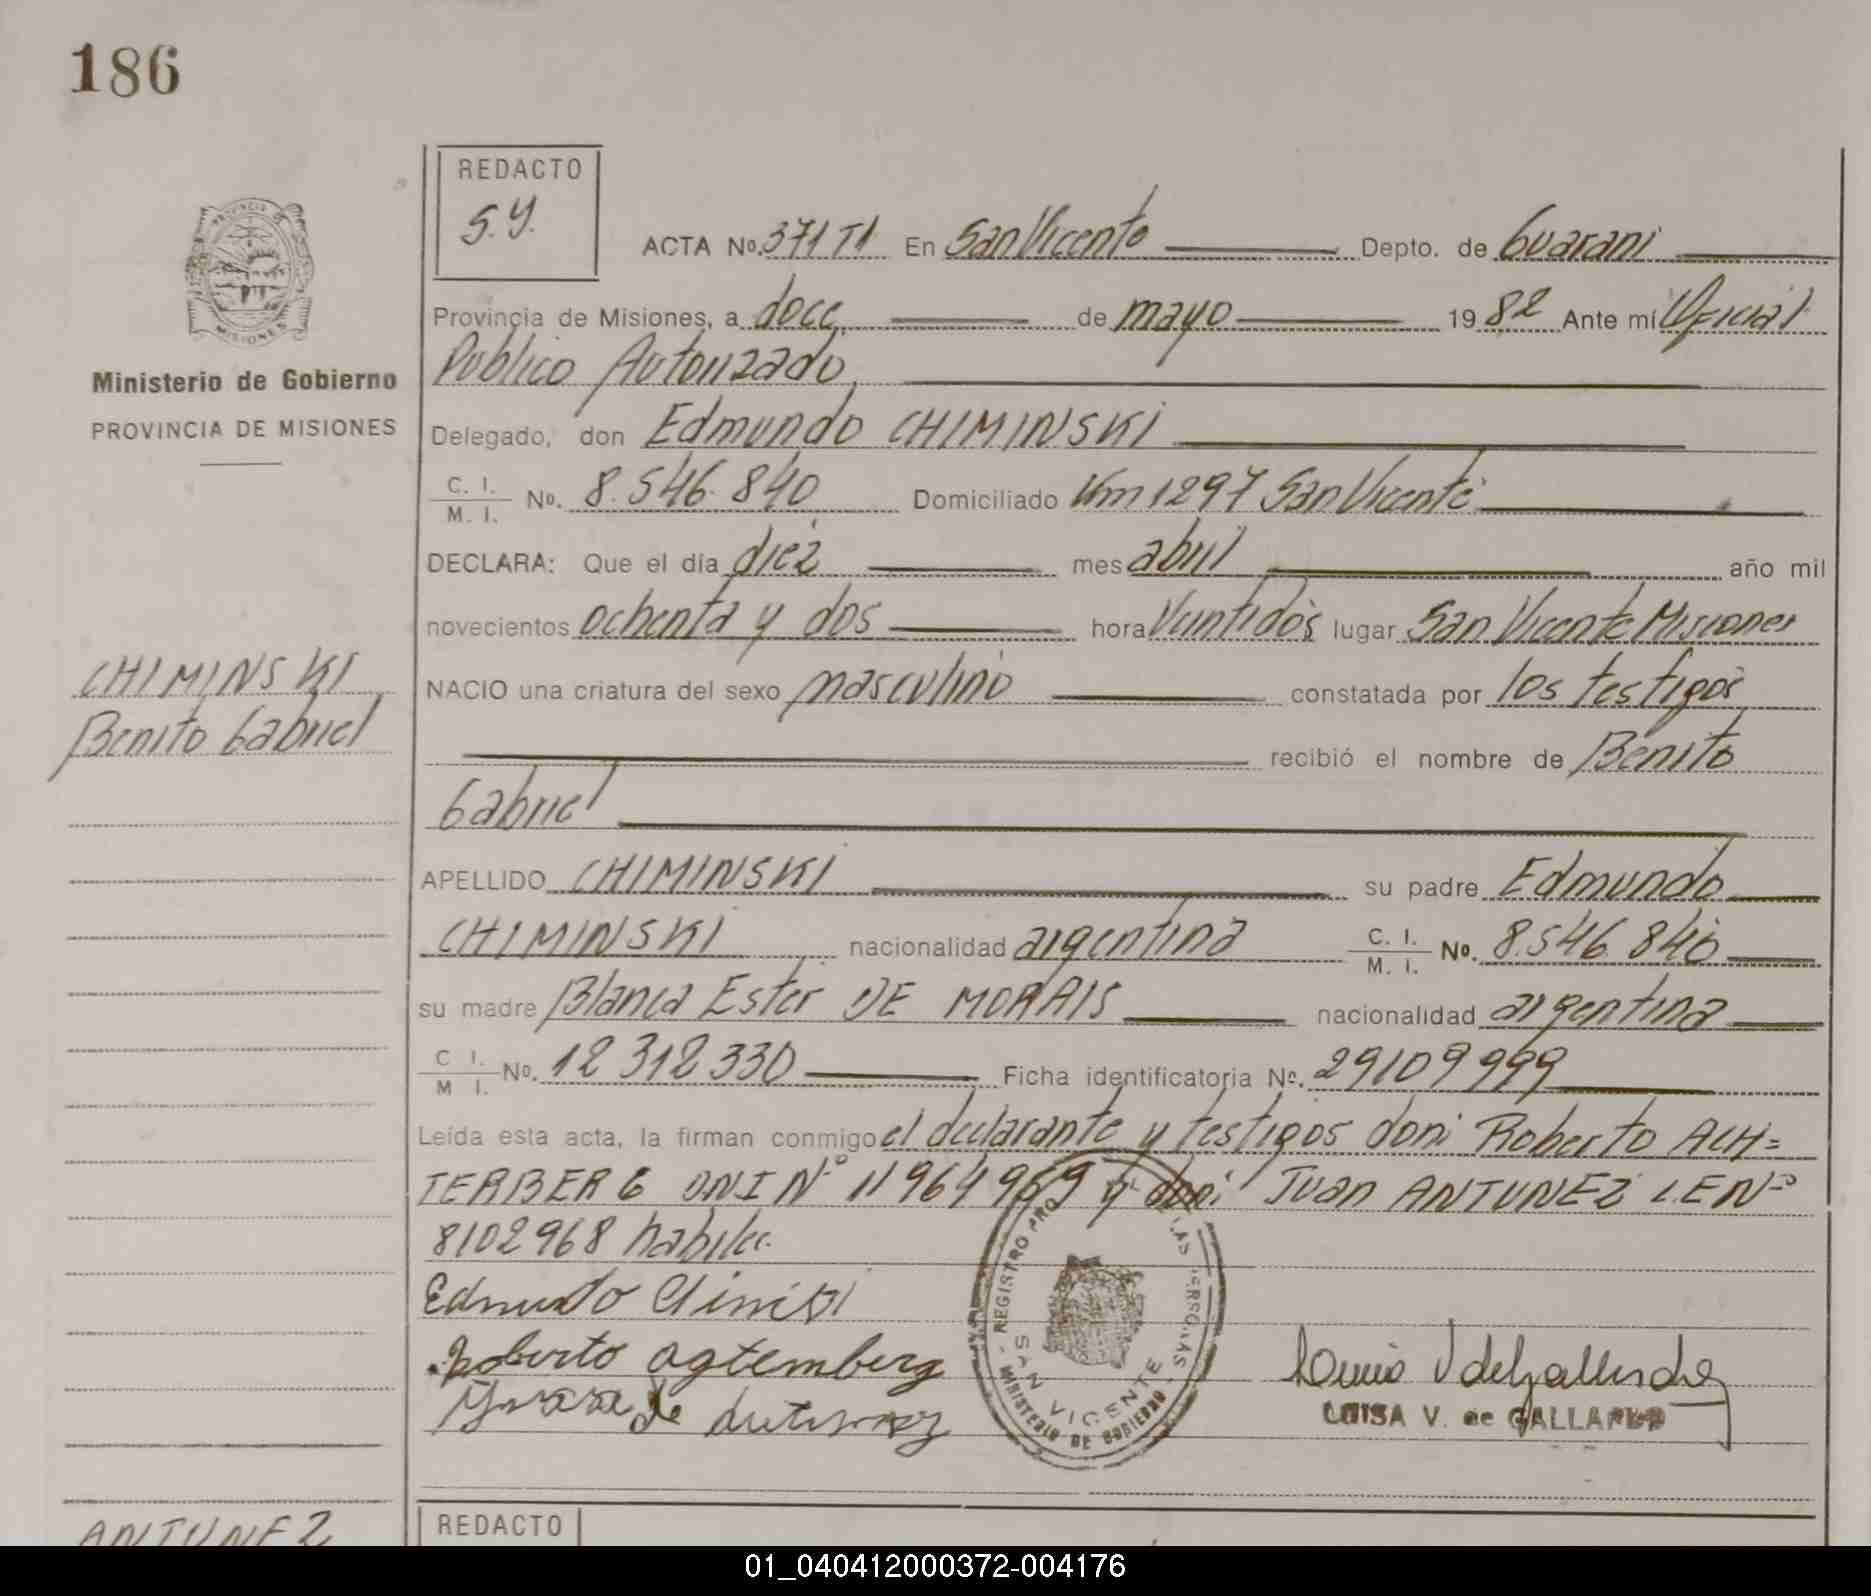 186
REDACTO
S.Y.
PROVINCIA DE
MISIONES
Ministerio de Gobierno
PROVINCIA DE MISIONES
ACTA No. 371 T1 En San Vicente Depto. de Guarani
Provincia de Misiones, a doce de mayo 1982 Ante mí Oficial
Publico Autorizado,
Delegado, don Edmundo CHIMINSKI
C. I. / M. I. No. 8.546.840 Domiciliado Km 1297 San Vicente
DECLARA: Que el día diez mes abril año mil
novecientos ochenta y dos hora Veintidos lugar San Vicente Misiones
CHIMINSKI
Benito Gabriel
NACIO una criatura del sexo masculino constatada por los testigos
recibió el nombre de Benito
Gabriel
APELLIDO CHIMINSKI su padre Edmundo
CHIMINSKI nacionalidad argentina C. I. / M. I. No. 8.546.840
su madre Blanca Ester DE MORAIS nacionalidad argentina
C I. / M I. No. 12 312 330 Ficha identificatoria No. 29109999
Leída esta acta, la firman conmigo el declarante y testigos don: Roberto ACH=
TERBERG DNI Nº 11964969 y don: Juan ANTUNEZ LE Nº
8102968 habiles.
Edmundo
Roberto agtemberg
REGISTRO
SAN VICENTE
MINISTERIO DE GOBIERNO
LUISA V. de GALLARDO
ANTUNEZ
REDACTO
01_040412000372-004176